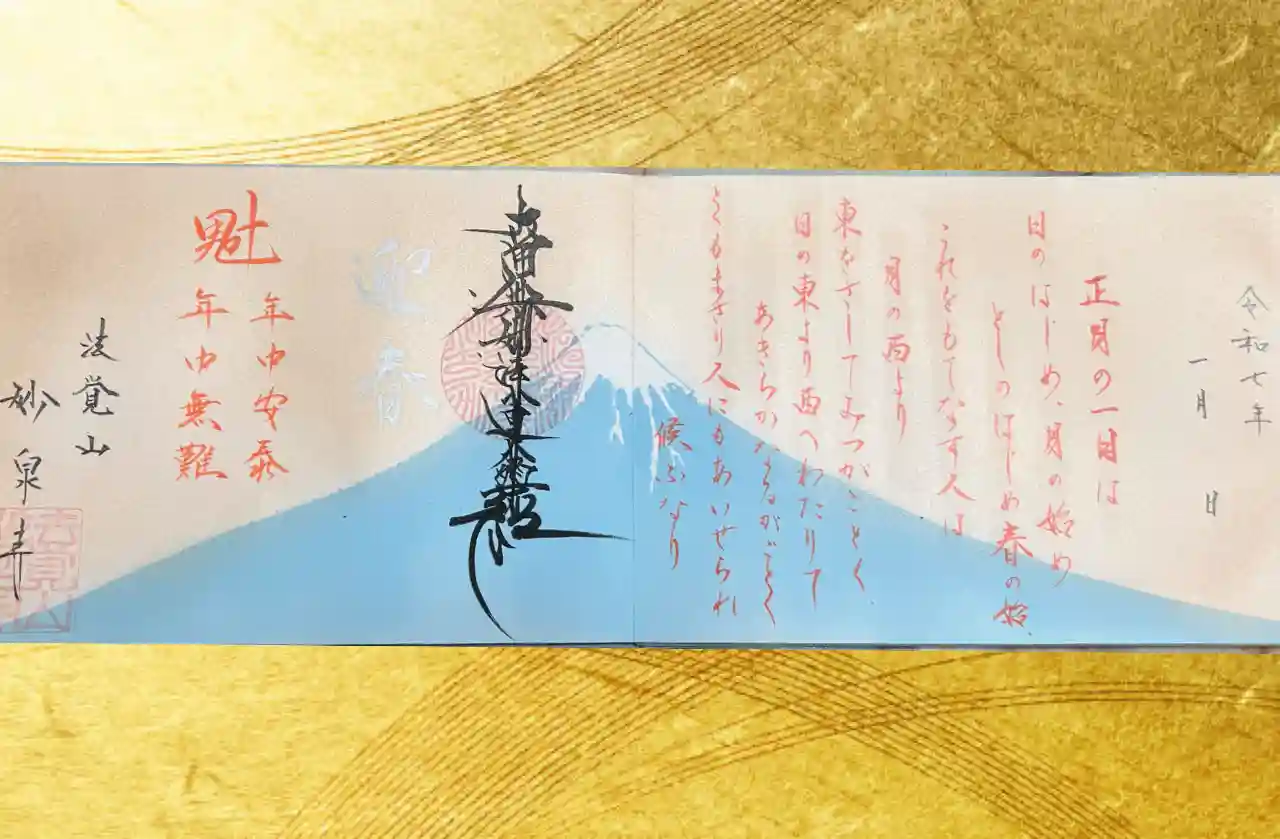 令和七年
一月 日
正月の一日は
日のはじめ、月の始め
としのはじめ春の始
これをもてなす人は
月の西より
東をさしてみつがごとく
日の東より西へわたりて
あきらかなるがごとく
とくもまさり人にもあいせられ
候ふなり
南無妙法蓮華経
迎春
魁
年中安泰
年中無難
法覚山
妙泉寺